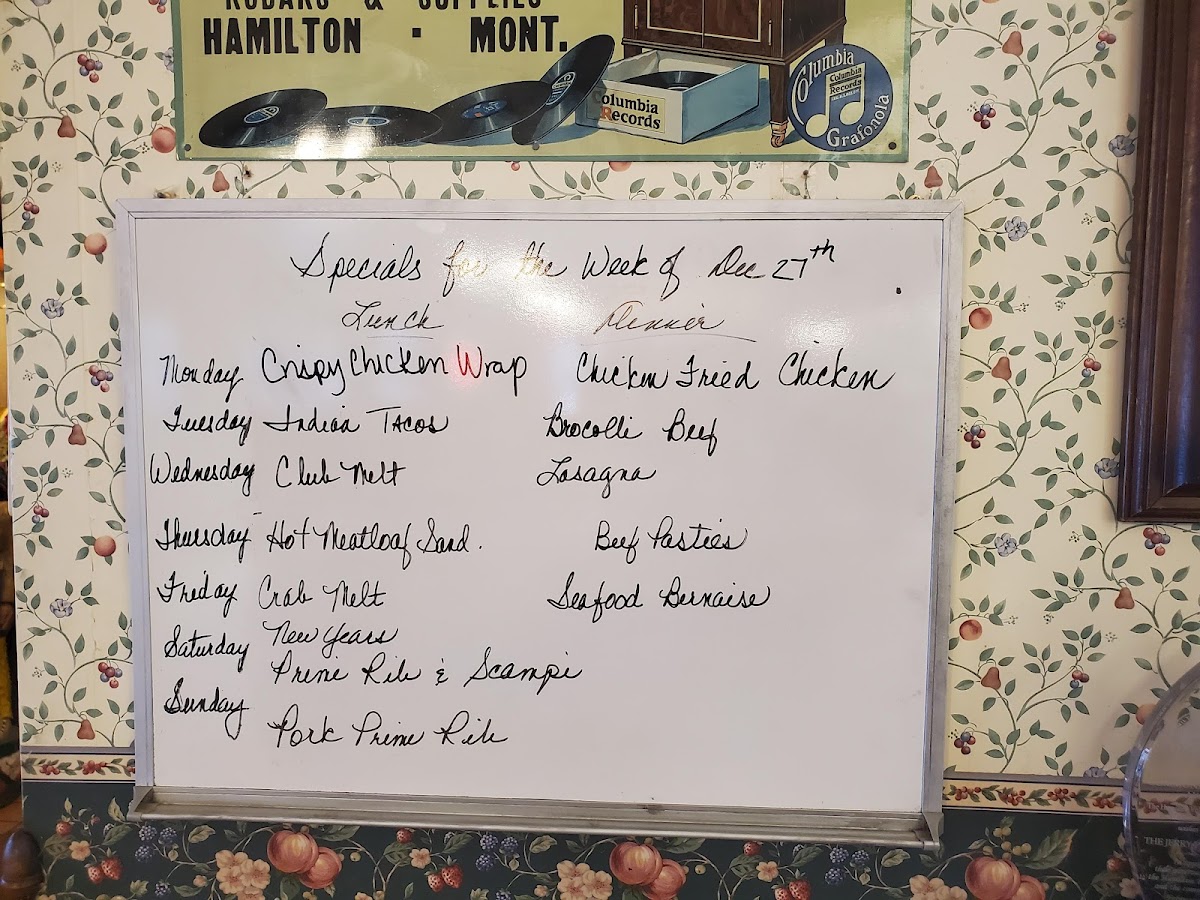 KODAKS & SUPPLIES
HAMILTON · MONT.
Columbia
Records
Columbia
Columbia
Records
Grafonola
Specials for the Week of Dec 27th
Lunch Dinner
Monday Crispy Chicken Wrap Chicken Fried Chicken
Tuesday Indian Tacos Brocolli Beef
Wednesday Club Melt Lasagna
Thursday Hot Meatloaf Sand. Beef Pasties
Friday Crab Melt Seafood Bernaise
Saturday New Years
Prime Rib & Scampi
Sunday
Pork Prime Rib